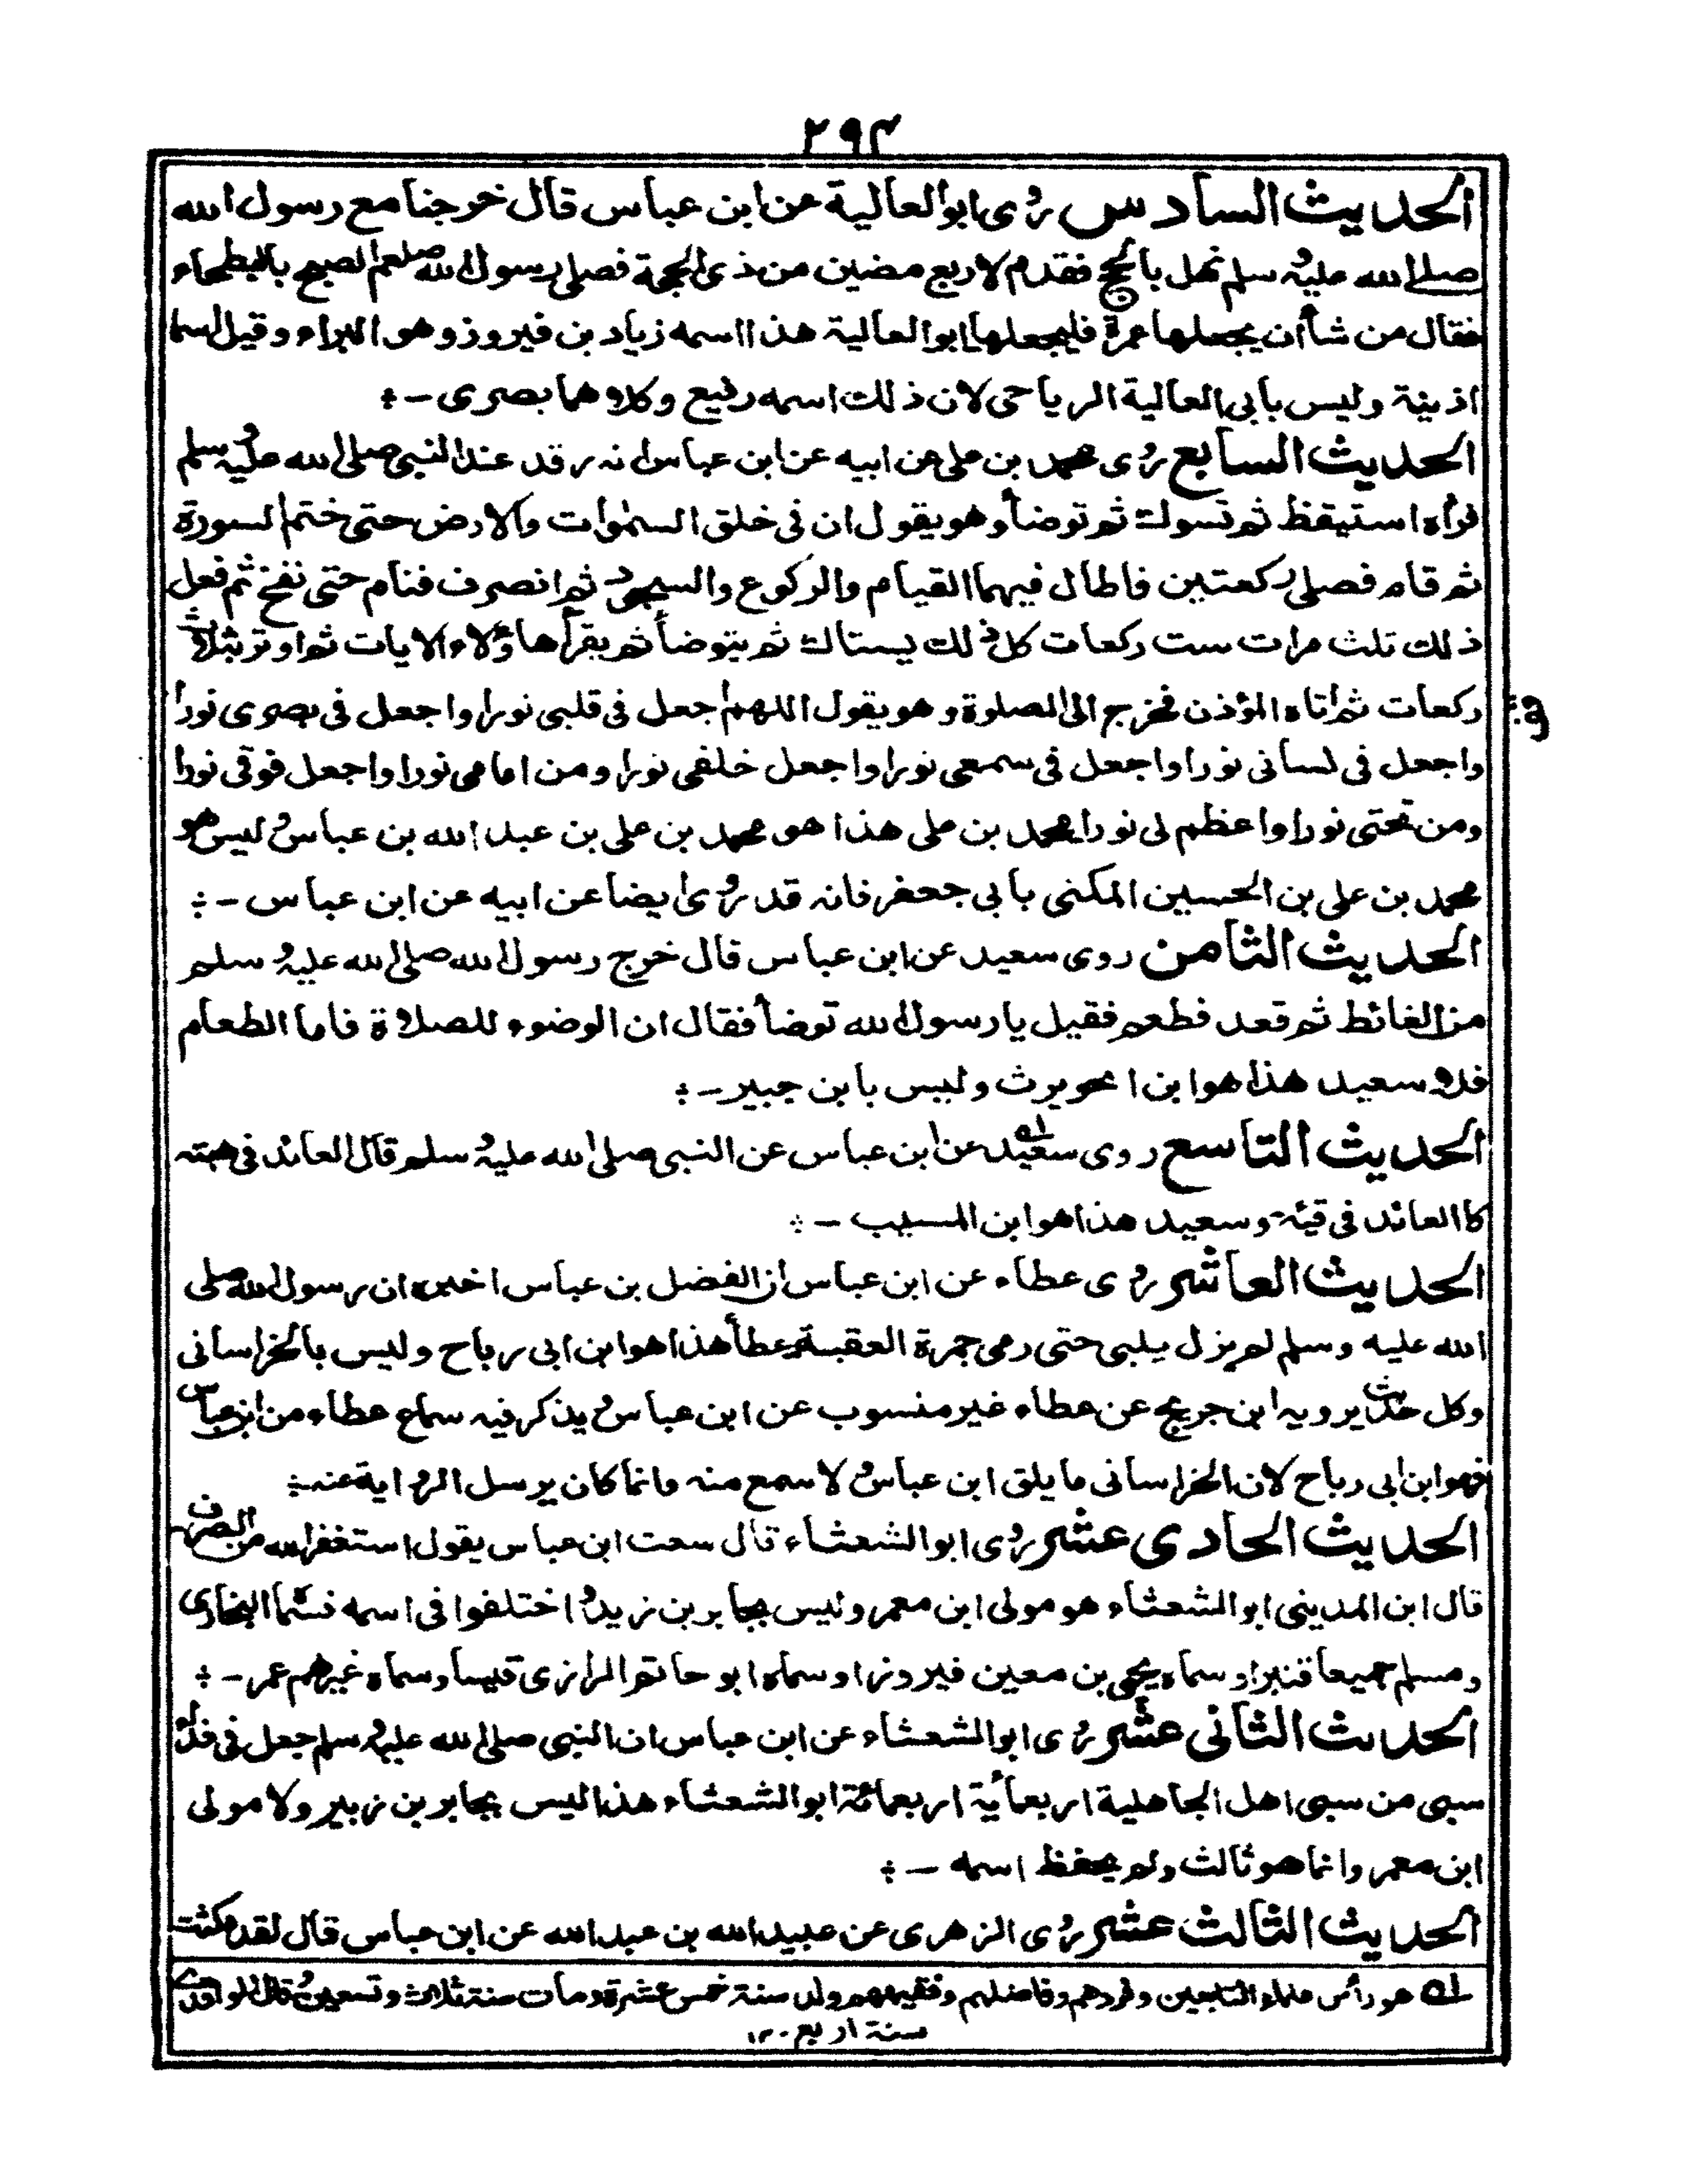 ٢٩٤
الحديث السادس روى ابو العالية عن ابن عباس قال خرجنا مع رسول الله
صلى الله عليه وسلم نهل بالحج فقدم لاربع مضين من ذى الحجة فصلى رسول الله صلعم الصبح بالبطحاء
فقال من شاأن يجعلها عمرة فليجعلها ابو العالية هذا اسمه زياد بن فيروز وهو البراء وقيل اسما
اذينة وليس بابى العالية الرياحى لان ذلك اسمه رفيع وكلاهما بصرى -
الحديث السابع روى محمد بن على عن ابيه عن ابن عباس انه رقد عند النبى صلى الله عليه وسلم
فرأه استيقظ ثم تسوك ثم توضأ وهو يقول ان فى خلق السموات والارض حتى ختم السورة
ثم قام فصلى ركعتين فاطال فيهما القيام والركوع والسجود ثم انصرف فنام حتى نفخ ثم فعل
ذلك ثلث مرات ست ركعات كل ذلك يستاك ثم يتوضأ ثم يقرأ هاؤلاء الايات ثم اوتر بثلاث
ركعات ثم اتاه المؤذن فخرج الى الصلوة وهو يقول اللهم اجعل فى قلبى نورا واجعل فى بصرى نورا
واجعل فى لسانى نورا واجعل فى سمعى نورا واجعل خلفى نورا ومن امامى نورا واجعل فوقى نورا
ومن تحتى نورا واعظم لى نورا محمد بن على هذا هو محمد بن على بن عبد الله بن عباس وليس هو
محمد بن على بن الحسين المكنى بابى جعفر فانه قد روى ايضا عن ابيه عن ابن عباس -
الحديث الثامن روى سعيد عن ابن عباس قال خرج رسول الله صلى الله عليه وسلم
من الغائط ثم قعد فطعم فقيل يا رسول الله توضأ فقال ان الوضوء للصلاة فاما الطعام
فلا وسعيد هذا هو ابن الحويرث وليس بابن جبير -
الحديث التاسع روى سعيد عن ابن عباس عن النبى صلى الله عليه وسلم قال العائد فى هبته
كالعائد فى قيئه وسعيد هذا هو ابن المسيب -
الحديث العاشر روى عطاء عن ابن عباس ان الفضل بن عباس اخبره ان رسول الله صلى
الله عليه وسلم لم يزل يلبى حتى رمى جمرة العقبة وعطأ هذا هو ابن ابى رباح وليس بالخراسانى
وكل حديث يرويه ابن جريج عن عطاء غير منسوب عن ابن عباس ويذكر فيه سماع عطاء من ابن عباس
فهو ابن ابى رباح لان الخراسانى ما يلق ابن عباس ولا سمع منه وانما كان يرسل الرواية عنه
الحديث الحادى عشر روى ابو الشعثاء قال سمعت ابن عباس يقول استغفر الله من الصرف
قال ابن المدينى ابو الشعثاء هو مولى ابن معمر وليس بجابر بن زيد واختلفوا فى اسمه فسما البخارى
ومسلم جميعا قنبرا وسماه يحيى بن معين فيروزا وسماه ابو حاتم الرازى قيسا وسماه غيرهم عمر -
الحديث الثانى عشر روى ابو الشعثاء عن ابن عباس ان النبى صلى الله عليه وسلم جعل فى فداء
سبى من سبى اهل الجاهلية اربعمأية اربعمائة ابو الشعثاء هذا ليس بجابر بن زبير ولا مولى
ابن معمر وانما هو ثالث ولم يحفظ اسمه -
الحديث الثالث عشر روى الزهرى عن عبيد الله بن عبد الله عن ابن عباس قال لقد مكثت
له هو رأس علماء التابعين وفردهم وفاضلهم وفقيههم ولد سنة خمس عشرة ومات سنة ثلاث وتسعين وقال الواقدى
سنة اربع ١٢